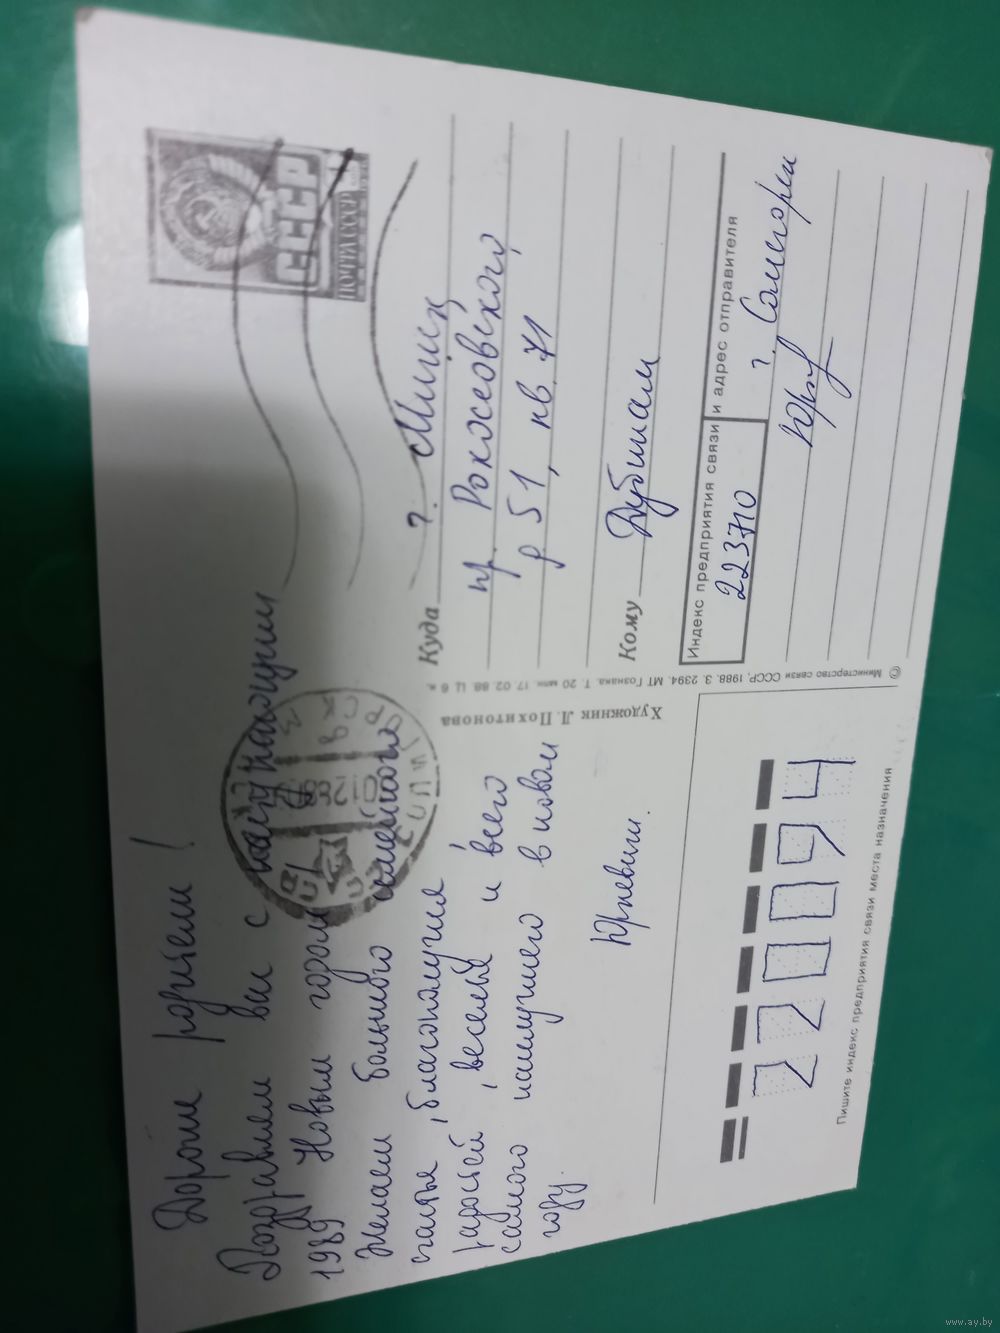 Дорогие родители!
Поздравляем вас с наступающим
1989 Новым годом!
Желаем большого семейного
счастья, благополучия,
радостей, веселья и всего
самого наилучшего в новом
году.
Юркевичи.
СССР
ПОЧТА СССР
Куда г. Минск
пр. Рокоссовского,
д 51, кв. 71
Кому Дубинам
Индекс предприятия связи и адрес отправителя
223710
г. Солигорск
Юрк
© Министерство связи СССР, 1988. З. 2394. МТ Гознака. Т. 20 млн. 17. 02. 88. Ц. 6 к.
Художник Л. Похитонова
220094
Пишите индекс предприятия связи места назначения
www.ay.by